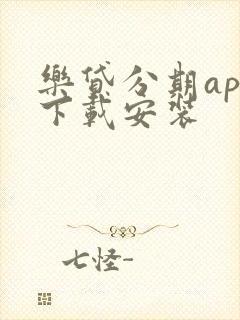 樂貸分期ap
下載安裝
七怪-